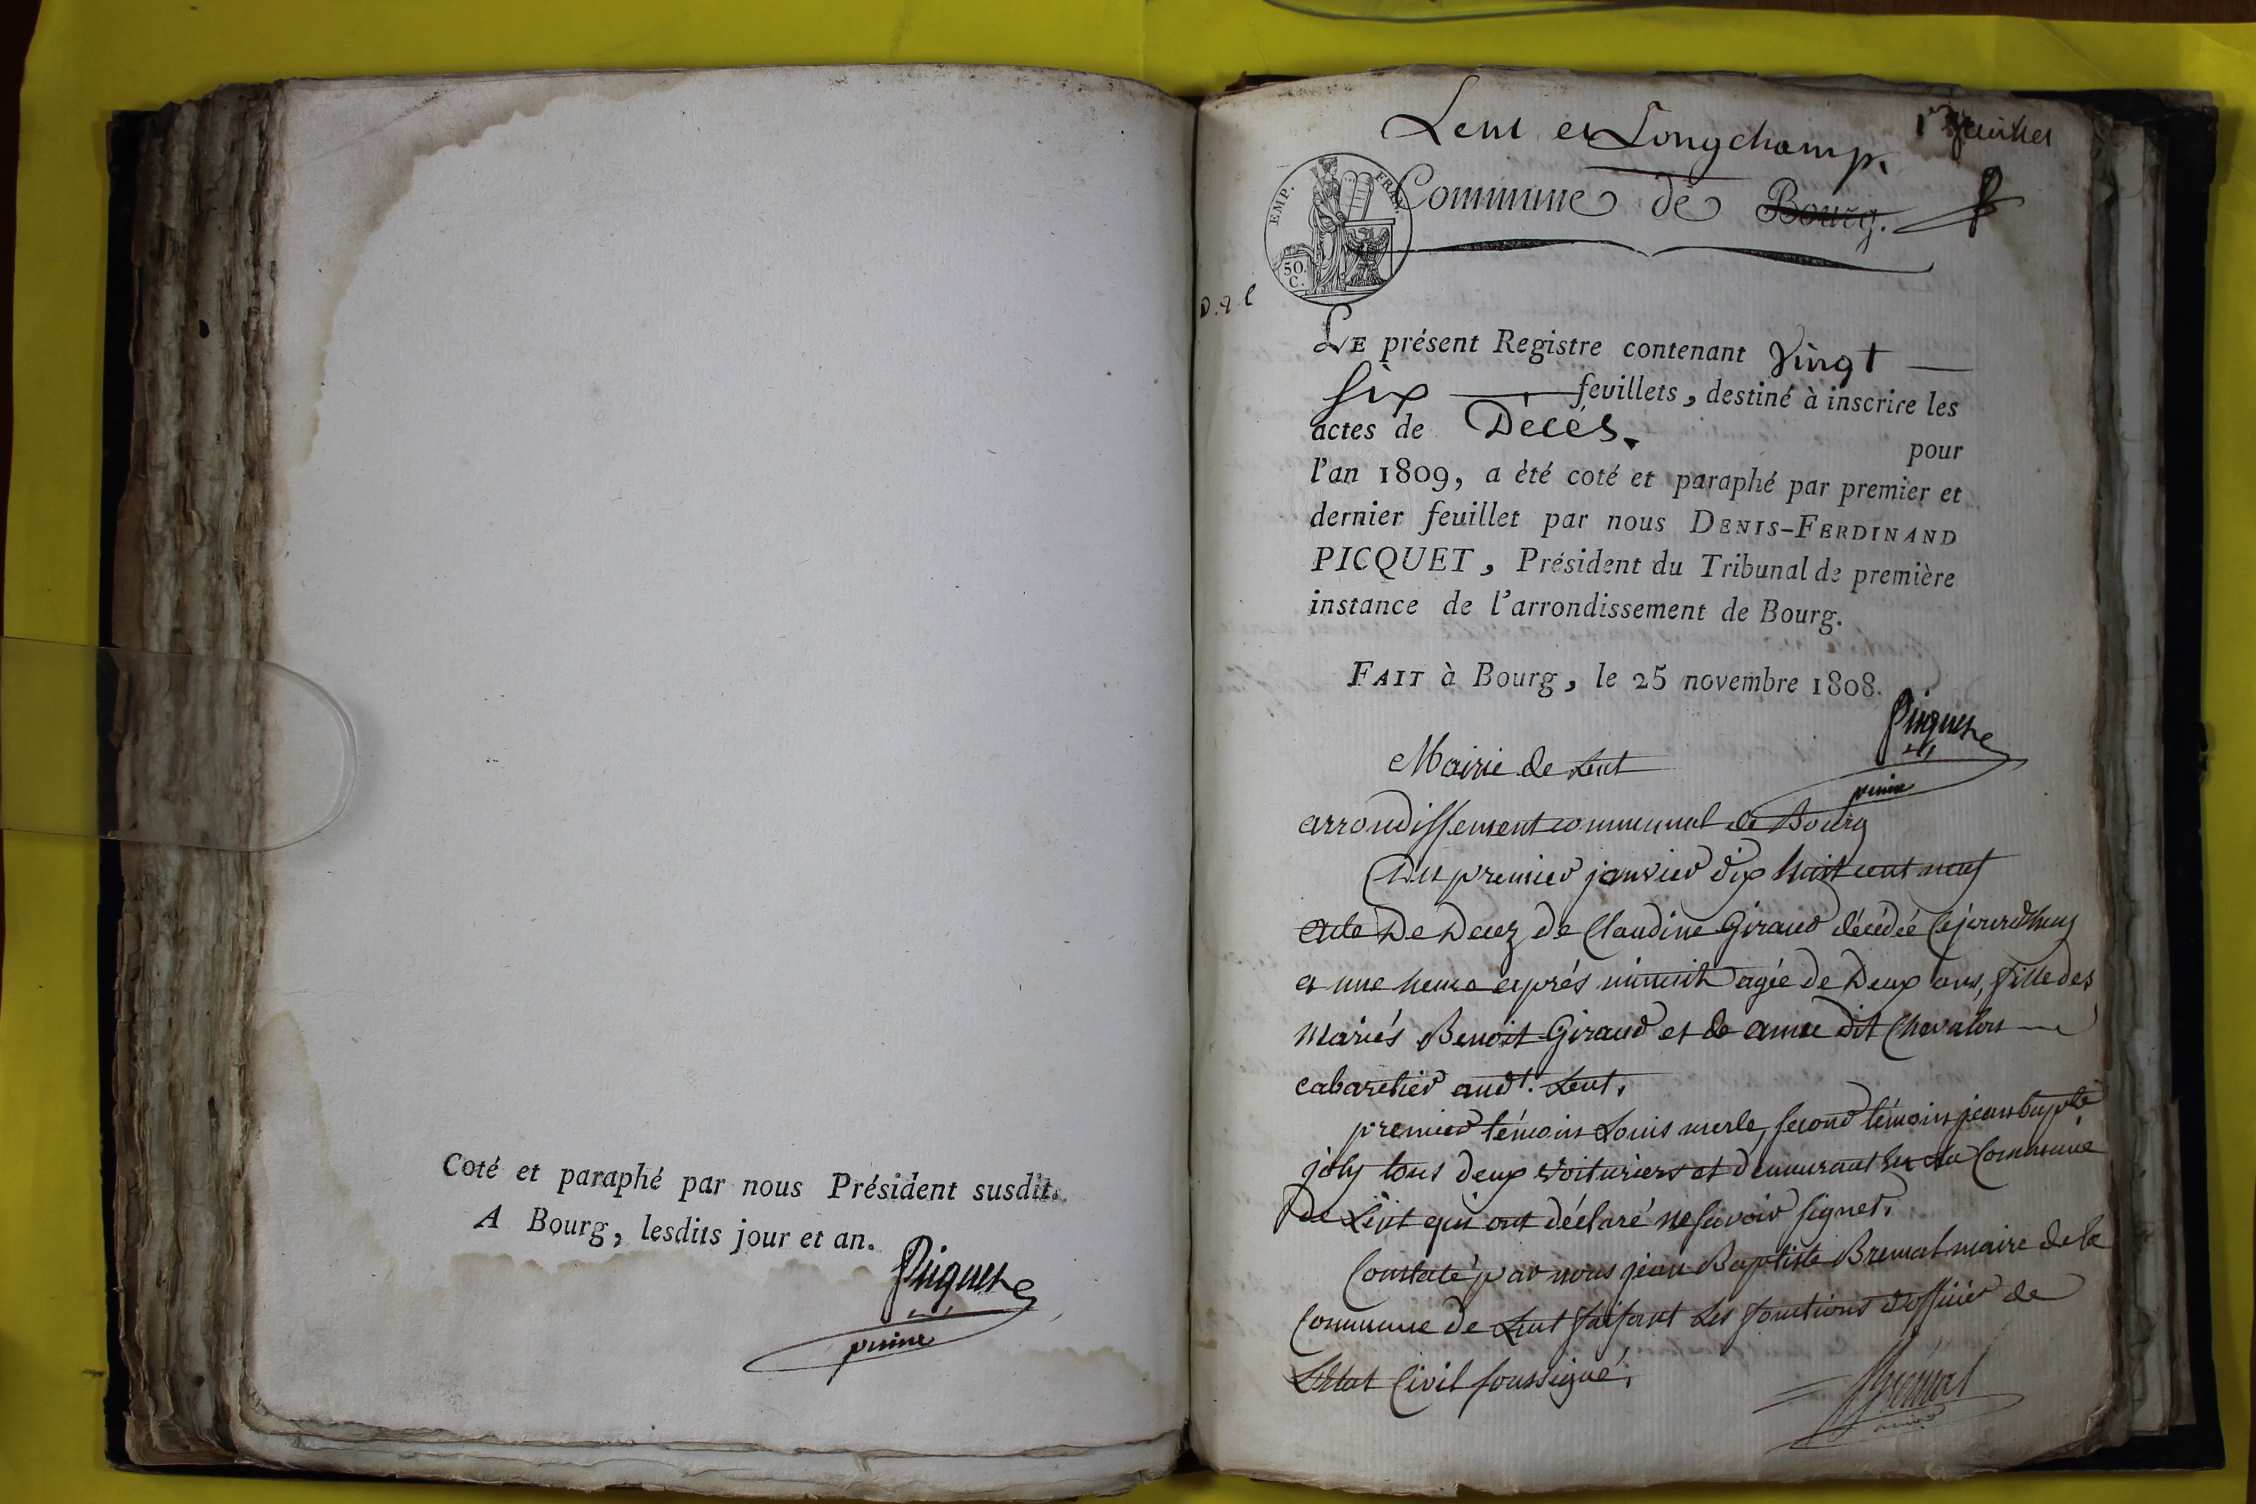 Coté et paraphé par nous Président susdit.
A Bourg, lesdits jour et an.
Picquet
prime
Lent et Longchamp.
1er feuillet
EMP. FRAN.
50.
C.
Commune de Bourg.
LE présent Registre contenant Vingt
Six feuillets, destiné à inscrire les
actes de Décès.
pour
l'an 1809, a èté coté et paraphé par premier et
dernier feuillet par nous DENIS-FERDINAND
PICQUET, Président du Tribunal de première
instance de l'arrondissement de Bourg.
FAIT à Bourg, le 25 novembre 1808.
Picquet
prime
Mairie de Lent
arrondissement communal de Bourg
Du premier janvier dix huit cent neuf
acte De Decez de Claudine Giraud décédée cejourdhuy
a une heure après minuit agée de Deux ans, fille des
mariés Benoit Giraud et de anne dit Chevalon
cabaretier audt. Lent.
premier témoin Louis merle, second témoin jean bapte
joly tous deux voituriers et demeurant en la Commune
de Lent qui ont déclaré ne savoir signer.
Constaté par nous jean Baptiste Bremal maire de la
Commune de Lent faisant les fonctions d'officier de
L'Etat Civil soussigné.
Bremal